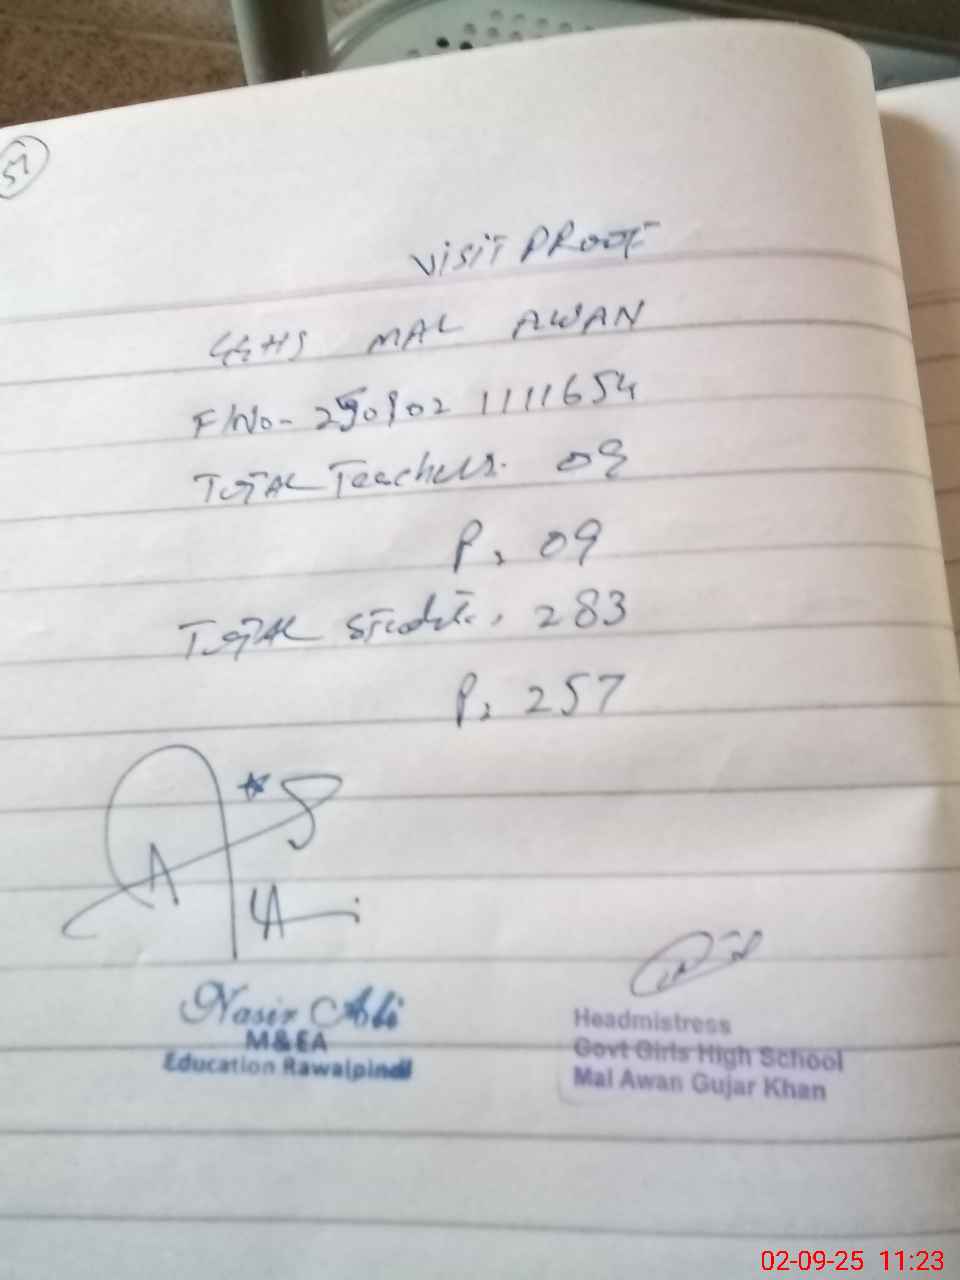 51
VISIT PROOF
GGHS MAL AWAN
F/No- 290902 1111654
TOTAL Teachers. 09
P, 09
TOTAL Students, 283
P, 257
Nasir Ali
M&EA
Education Rawalpindi
Headmistress
Govt Girls High School
Mal Awan Gujar Khan
02-09-25 11:23